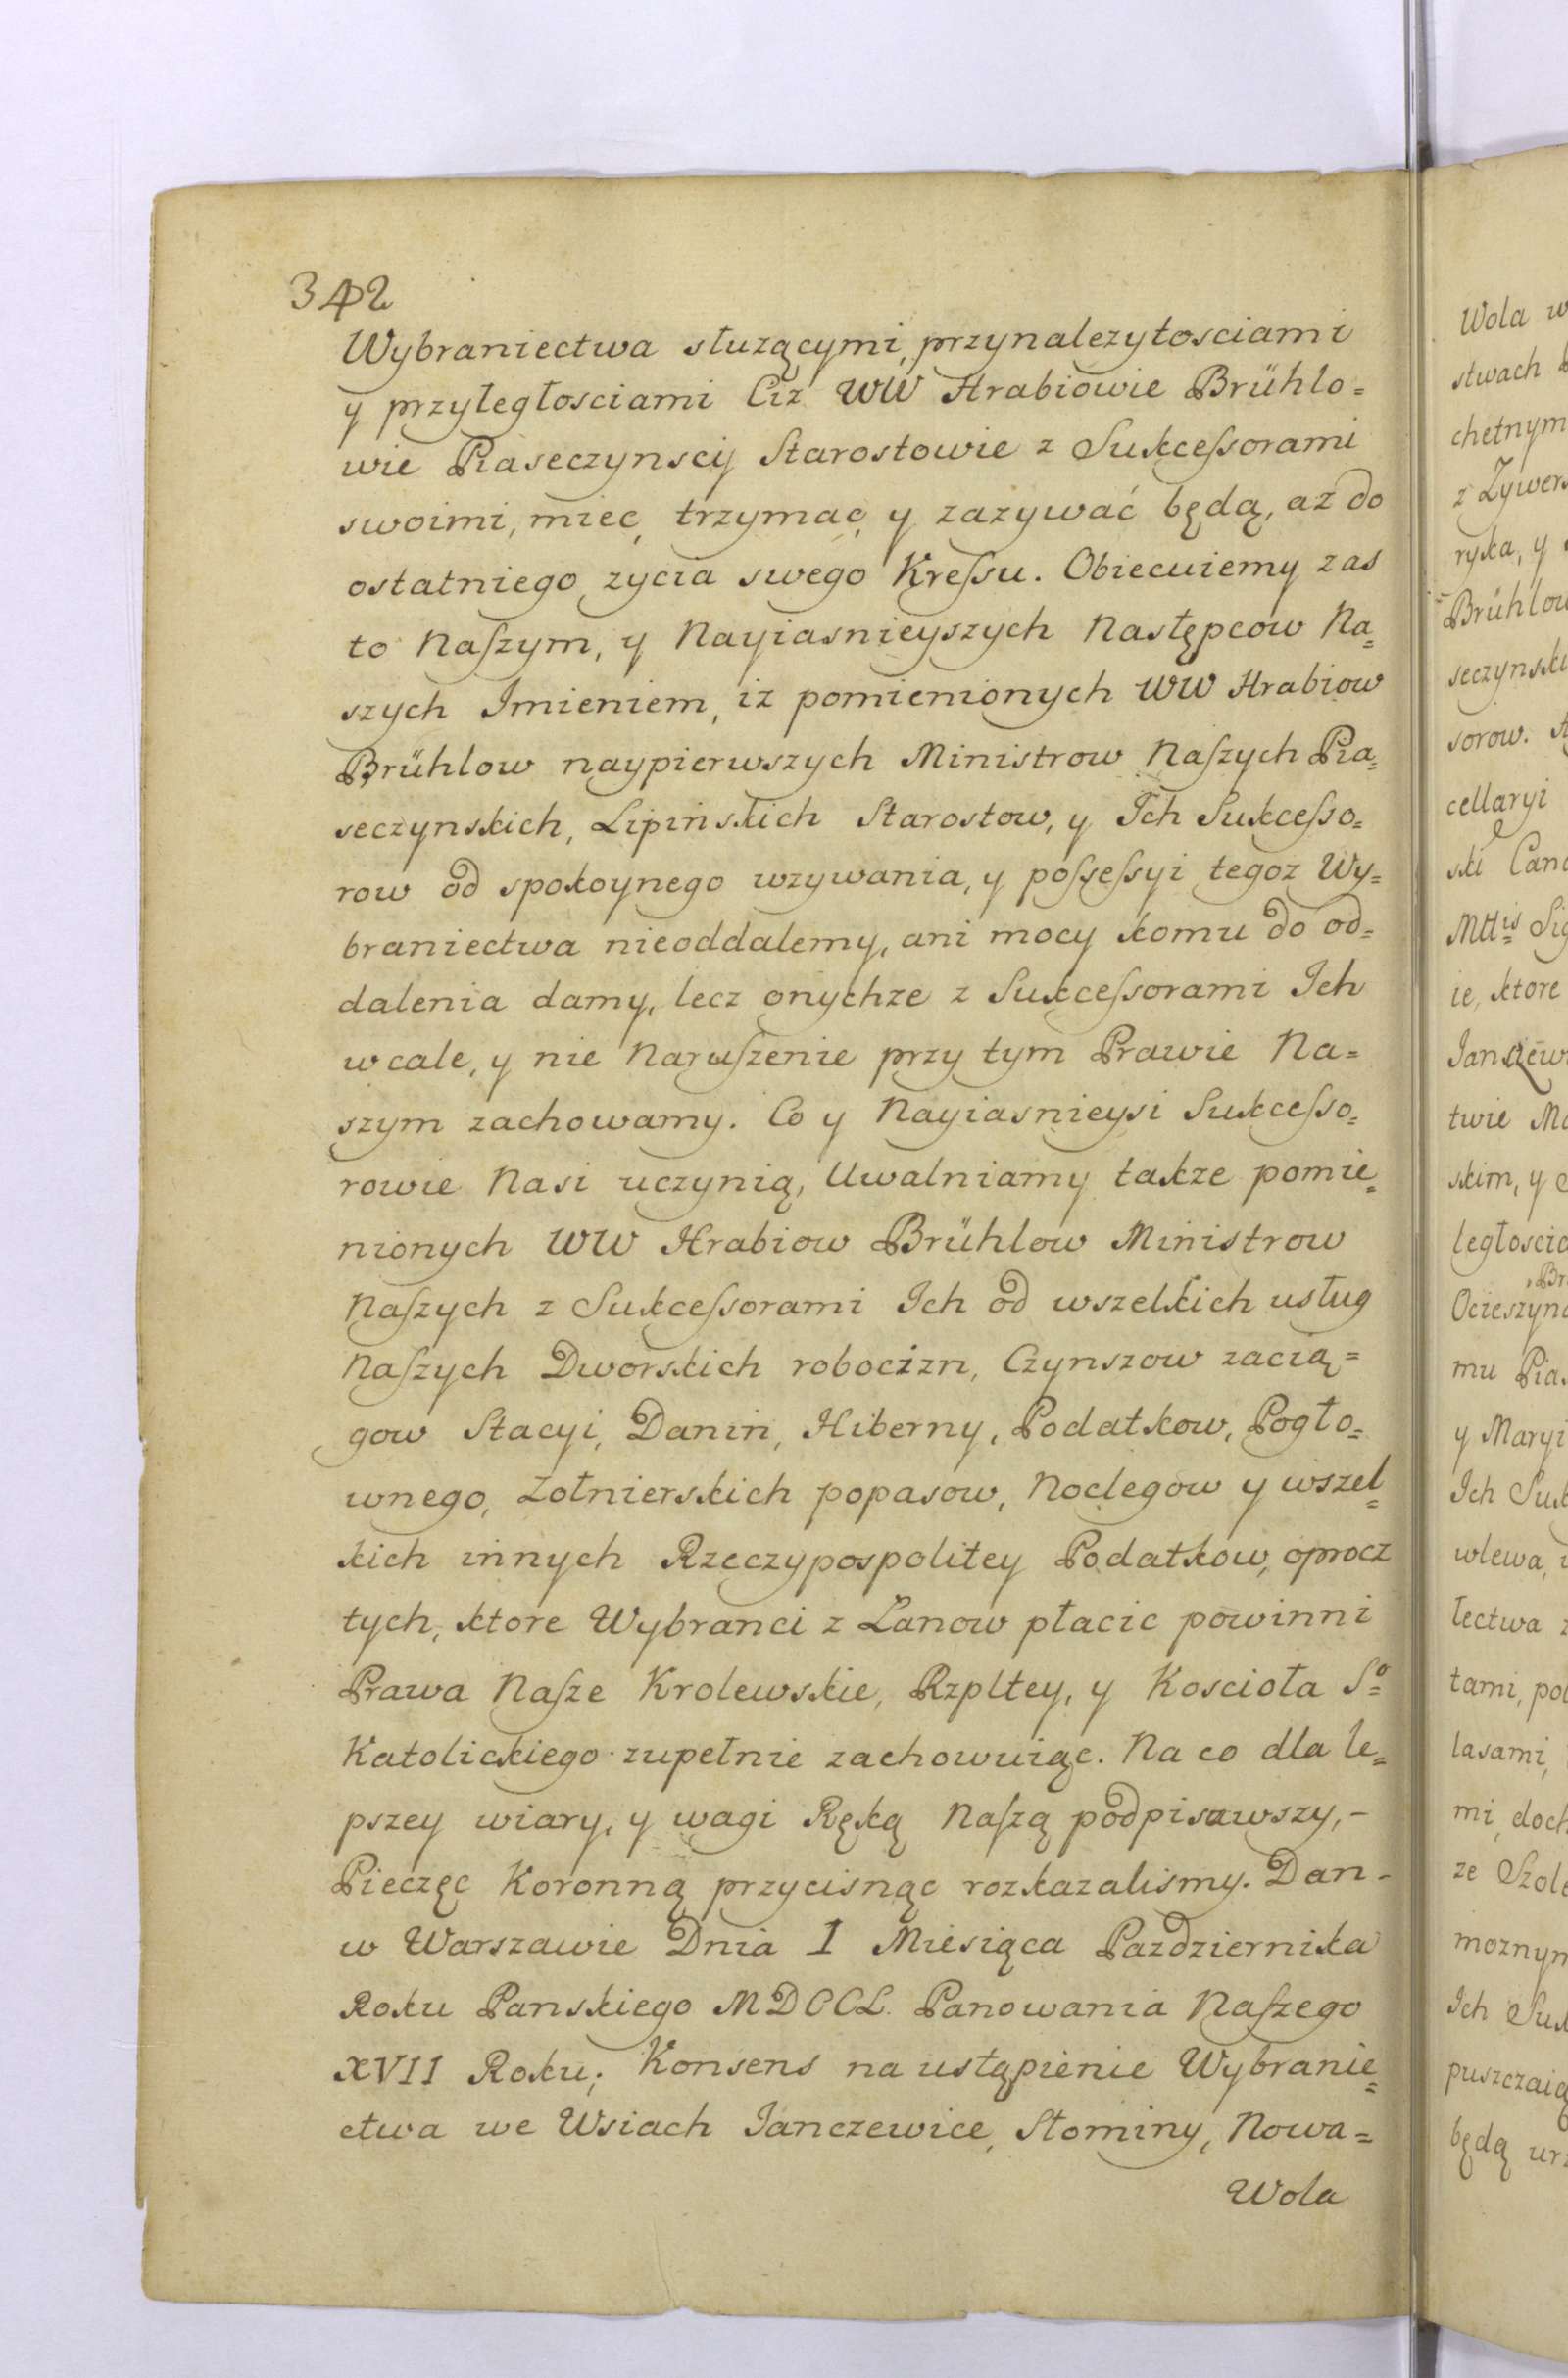 342
Wybraniectwa służącymi, przynalezytosciami
y przyległosciami Ciz WW Hrabiowie Brühlo=
wie Piaseczynscy Starostowie z Sukceſsorami
swoimi, miec, trzymac, y zazywać będą, az do
ostatniego zycia swego Kreſsu. Obiecuiemy zas
to Naſzym, y Nayiasnieyszych Następcow Na=
szych Imieniem, iz pomienionych WW Hrabiow
Brühlow naypierwszych Ministrow Naſzych Pia=
seczynskich, Lipinskich Starostow, y Ich Sukceſso=
row od spokoynego wzywania, y poſseſsyi tegoz Wy=
braniectwa nieoddalemy, ani mocy komu do od=
dalenia damy, lecz onychze z Sukceſsorami Ich
wcale, y nie Naruſzenie przy tym Prawie Na=
szym zachowamy. Co y Nayiasnieysi Sukceſso=
rowie Nasi uczynią, Uwalniamy takze pomie=
nionych WW Hrabiow Brühlow Ministrow
Naſzych z Sukceſsorami Ich od wszelkich usług
Naſzych Dworskich robocizn, Czynszow zacią=
gow Stacyi, Danin, Hiberny, Podatkow, Pogło=
wnego, Zołnierskich popasow, Noclegow y wszel=
kich innych Rzeczypospolitey Podatkow, oprocz
tych, ktore Wybranci z Lanow płacic powinni
Prawa Naſze Krolewskie, Rzpltey, y Koscioła Sº
Katolickiego zupełnie zachowuiąc. Na co dla le=
pszey wiary, y wagi Ręką Naſzą podpisawszy,-
Pieczęc Koronną przycisnąc rozkazalismy. Dan-
w Warszawie Dnia 1 Miesiąca Pazdziernika
Roku Panskiego MDCCL. Panowania Naſzego
XVII Roku; Konsens na ustąpienie Wybranie=
ctwa we Wsiach Janczewice, Słominy, Nowa=
Wola
Wola w
stwach
chetnym
z Zywers
ryka, y
=Brühlow
seczynski
sorow.
cellaryi
ski Canc
Mttis Sig
ie, ktore
Janczew
twie Ma
skim, y
ległoscia
Ocieszyn
mu Pias
y Maryi
Ich Suk
wlewa,
lectwa z
tami, pol
lasami,
mi, doch
ze Szol
moznym
Ich Suk
puszczaią
będą urz